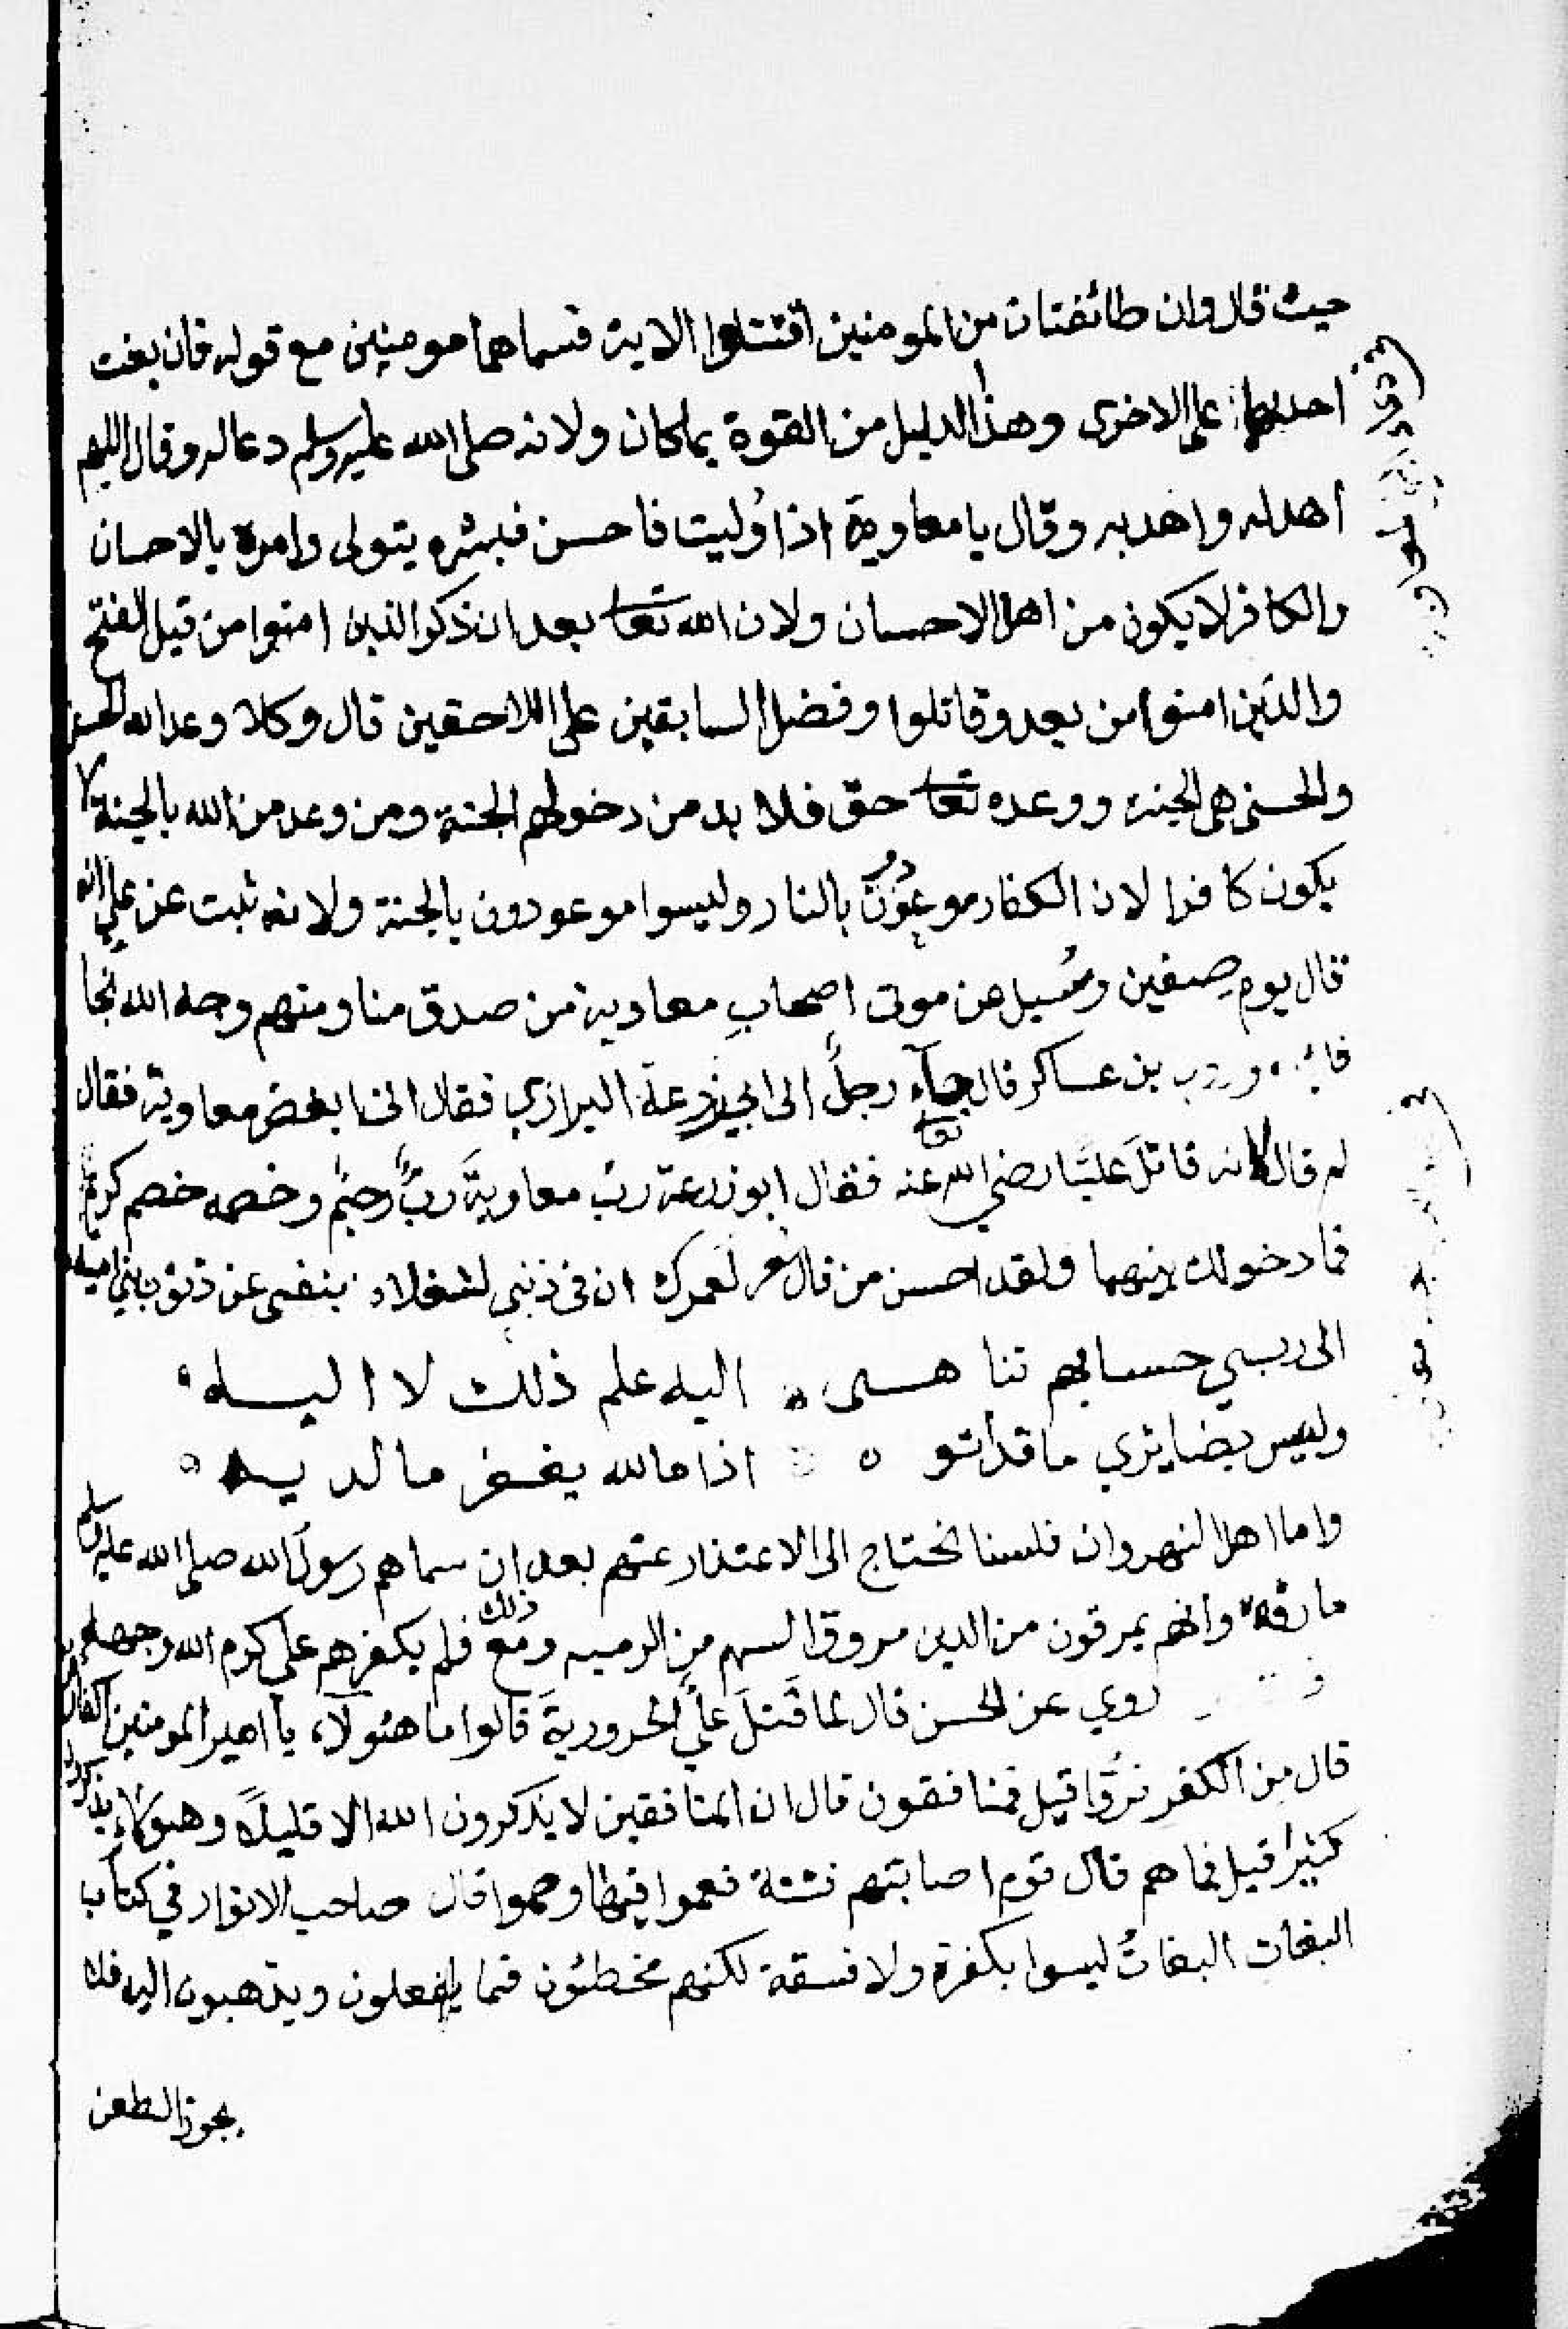 حيث قال وان طائفتان من المومنين اقتتلوا الاية فسماهما مومنين مع قوله فان بغت
احديهما على الاخرى وهذا الدليل من القوة بمكان ولانه صلى الله عليه وسلم دعا له وقال اللهم
اهده واهد به وقال يا معاوية اذا وُليت فاحسن فبشره يتولى وامره بالاحسان
والكافر لا يكون من اهل الاحسان ولان الله تعا بعد ان ذكر الذين امنوا من قبل الفتح
والذين امنوا من بعد وقاتلوا وفضل السابقين على اللاحقين قال وكلا وعد الله الحسنى
والحسنى هى الجنة ووعده تعا حق فلا بد من دخولهم الجنة ومن وعد من الله بالجنة لا
يكون كافرا لان الكفار موعودن بالنار وليسوا موعودون بالجنة ولانه ثبت عن علي انه
قال يوم صفين وسُيل عن موتى اصحابِ معاوية من صدق منا ومنهم وجه الله نجا
بن عساكر قال جآء رجلٌ الى ابي زرعة الرازي فقال انا ابغض معاوية فقال
لم قال لانه قاتلَ عليًا رضي الله تعا عنه فقال ابو زرعة ربُ معاويةَ ربٌ رحيمٌ وخصمه خصم كريم
فما دخولك بينهما ولقد احسن من قال شعر لعمرك ان فى ذنبي لشغلا بنفسى عن ذنوب بني اميه
الى ربي حسابهم تناهى ه اليه علم ذلك لا اليه
وليس بضايري ما قد اتو ه اذا ما الله يغفر ما لديه ه
واما اهل النهروان فلسنا نحتاج الى الاعتذار عنهم بعد ان سماهم رسول الله صلى الله عليه وسلم
مارقة وانهم يمرقون من الدين مروق السهم من الرميه ومع ذلك فلم يكفرهم على كرم الله وجهه
روي عن الحسن قال لما قَتلَ عليٌ الحروريةَ قالوا ما هئولآء يا امير المومنين اكفار
قال من الكفر فرُّوا قيل فمنافقون قال ان المنافقين لا يذكرون الله الا قليلاً وهؤلاء يذكرون
كثيرا قيل فما هم قال قوم اصابتهم فتنة فعموا فيها وصموا قال صاحب الانوار في كتاب
البغات البغاتُ ليسوا بكفرة ولا فسقة لكنهم مخطئون فما يفعلون ويذهبون اليه فلا
يجوز الطعن